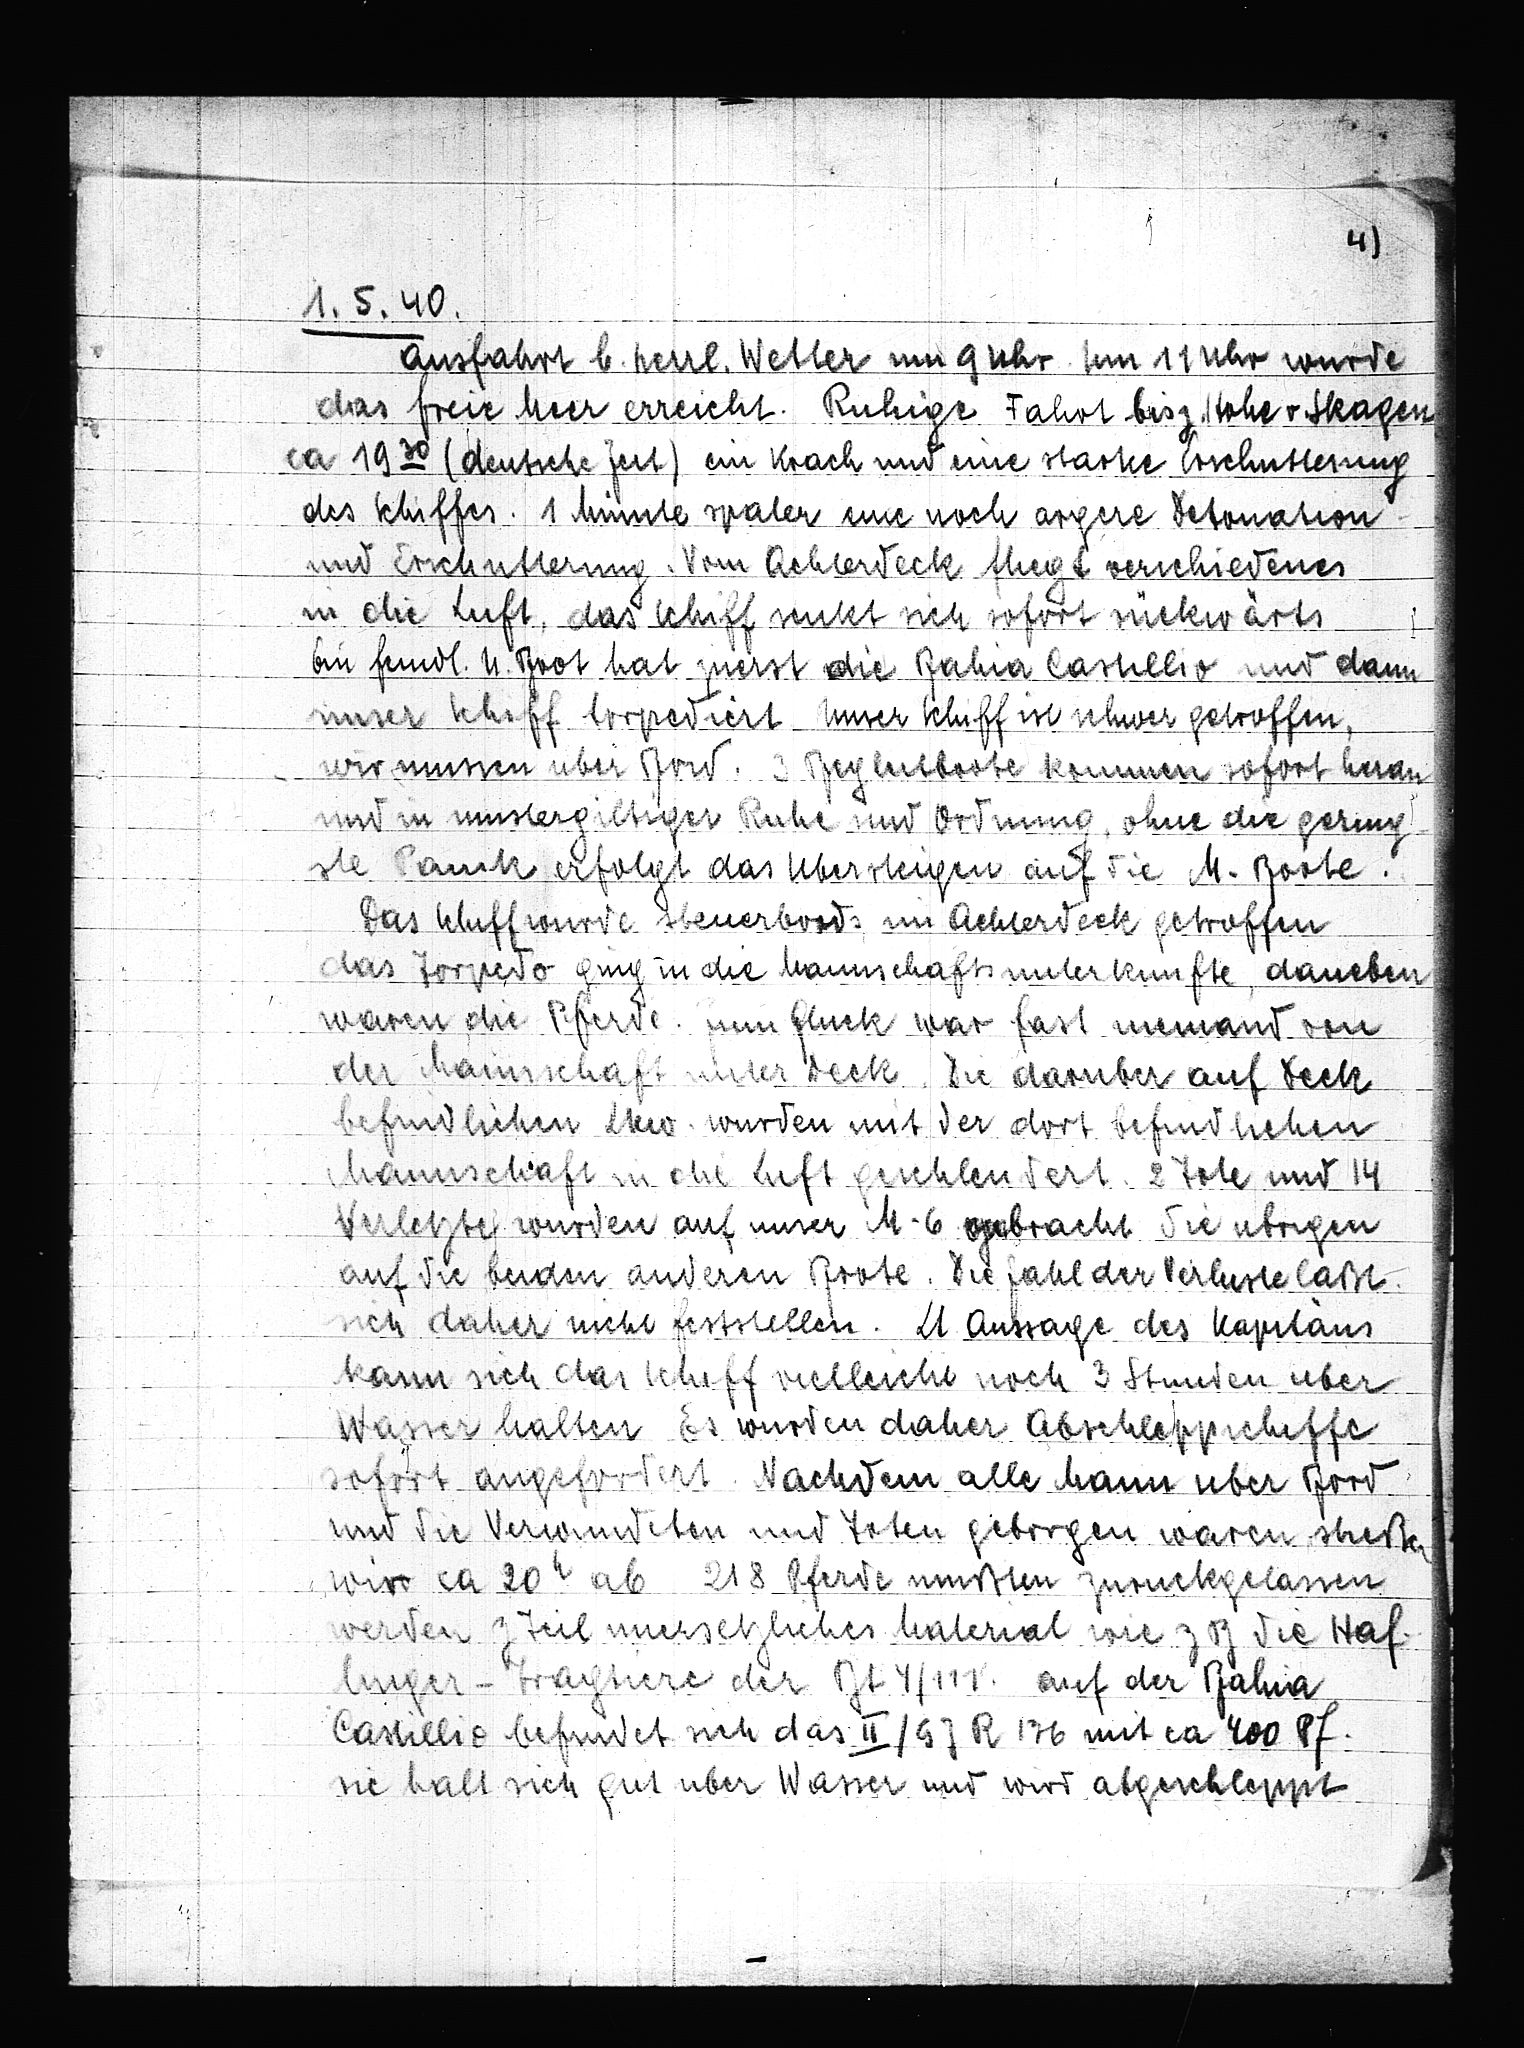 4)
1. 5. 40.
Ausfahrt b. herrl. Wetter um 9 Uhr. Um 11 Uhr wurde
das freie Meer erreicht. Ruhige Fahrt bis z. Höhe v. Skagen
ca 19 30 (deutsche Zeit) ein Krach und eine starke Erschutterung
des Schiffes. 1 Minute spater eine noch argere Detonation
und Erschutterung. Vom Achterdeck fliegt verschiedenes
in die Luft, das Schiff senkt sich sofort rückwärts
Ein feindl. U. Boot hat zuerst die Bahia Castillio und dann
unser Schiff torpediert. Unser Schiff ist schwer getroffen,
wir mussen uber Bord. 3 Begleitboote kommen sofort heran
und in mustergiltiger Ruhe und Ordnung, ohne die gering
ste Panik erfolgt das Ubersteigen auf die M. Boote.
Das Schiff wurde steuerbords im Achterdeck getroffen
das Torpedo ging in die Mannschaftsunterkunfte, daneben
waren die Pferde. Zum Gluck war fast niemand von
der Mannschaft unter Deck. Die daruber auf Deck
befindlichen Lkw. wurden mit der dort befindlichen
Mannschaft in die Luft geschleudert. 2 Tote und 14
Verletzte wurden auf unser M-6 gebracht die ubrigen
auf die beiden anderen Boote. Die Zahl der Verluste laßt
sich daher nicht feststellen. Lt Aussage des Kapitäns
kann sich das Schiff vielleicht noch 3 Stunden uber
Wasser halten Es wurden daher Abschleppschiffe
sofort angefordert. Nachdem alle Mann uber Bord
und die Verwundeten und Toten geborgen waren stießen
wir ca 20 h ab 218 Pferde mußten zuruckgelassen
werden z Teil unersetzliches Material wie z B die Haf-
linger - Tragtiere der Bt 4/111. auf der Bahia
Castillio befindet sich das II/G J R 136 mit ca 400 Pf.
sie halt sich gut uber Wasser und wird abgeschleppt